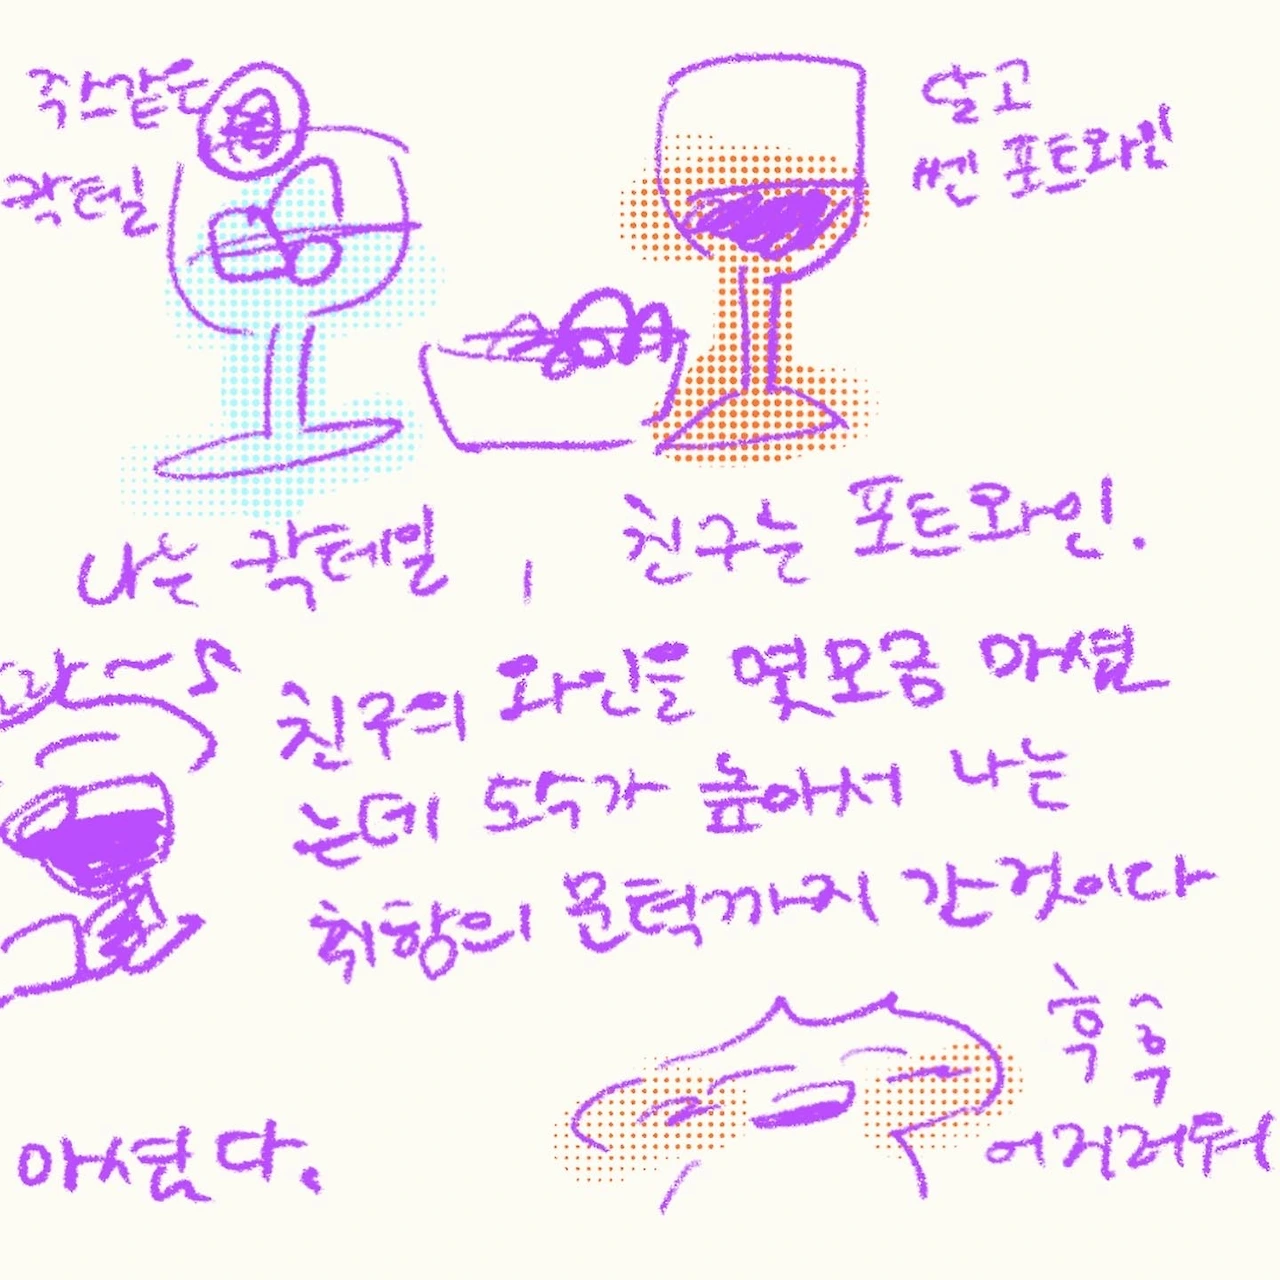 쥬스같은
칵테일
달고
쎈 포트와인
나는 칵테일, 친구는 포트와인.
친구의 와인을 몇모금 마셨
는데 도수가 높아서 나는
취향의 문턱까지 간것이다
흑흑
어지러워
마셨다.